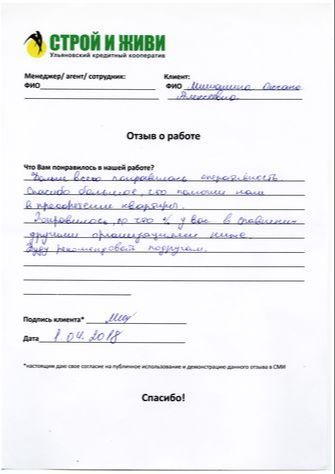 СТРОЙ И ЖИВИ
Ульяновский кредитный кооператив
Менеджер/ агент/ сотрудник: Клиент:
ФИО ФИО Оксана
Алексеевна
Отзыв о работе
Что Вам понравилось в нашей работе?
Больше всего понравилась оперативность.
Спасибо большое, что помогли нам
в преобретение квартиры.
Понравилось, то что % у вас в сравнении
другими организациями ниже.
Буду рекомендовать подругам.
Подпись клиента*
Дата 1.04.2018
*настоящим даю свое согласие на публичное использование и демонстрацию данного отзыва в СМИ
Спасибо!